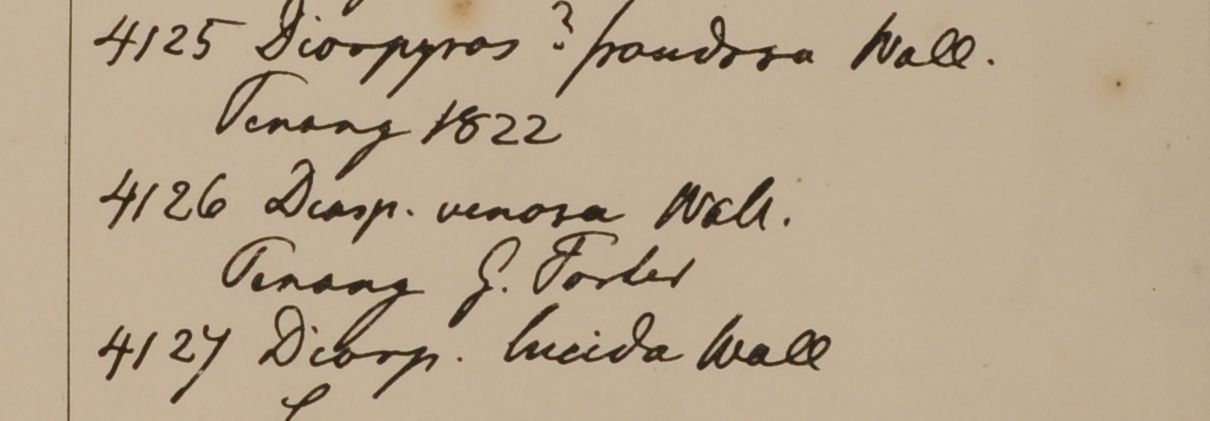 4125 Diospyros ? frondosa Wall.
Penang 1822
4126 Diosp. venosa Wall.
Penang G. Porter
4127 Diosp. lucida Wall